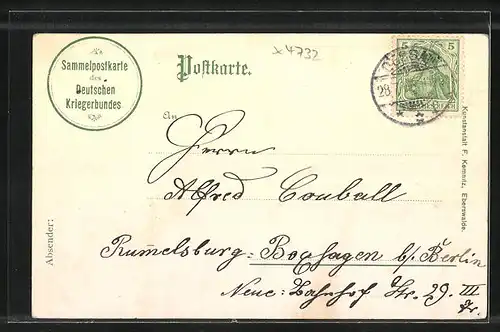 Sammelpostkarte
des
Deutschen
Kriegerbundes
Postkarte.
x 4732
5 5
28.
An
Herrn
Alfred Conball
Rum̅elsburg-Boxhagen b/Berlin
Neue Bahnhof Str. 29 III
Absender:
Kunstanstalt F. Kemnitz, Eberswalde.